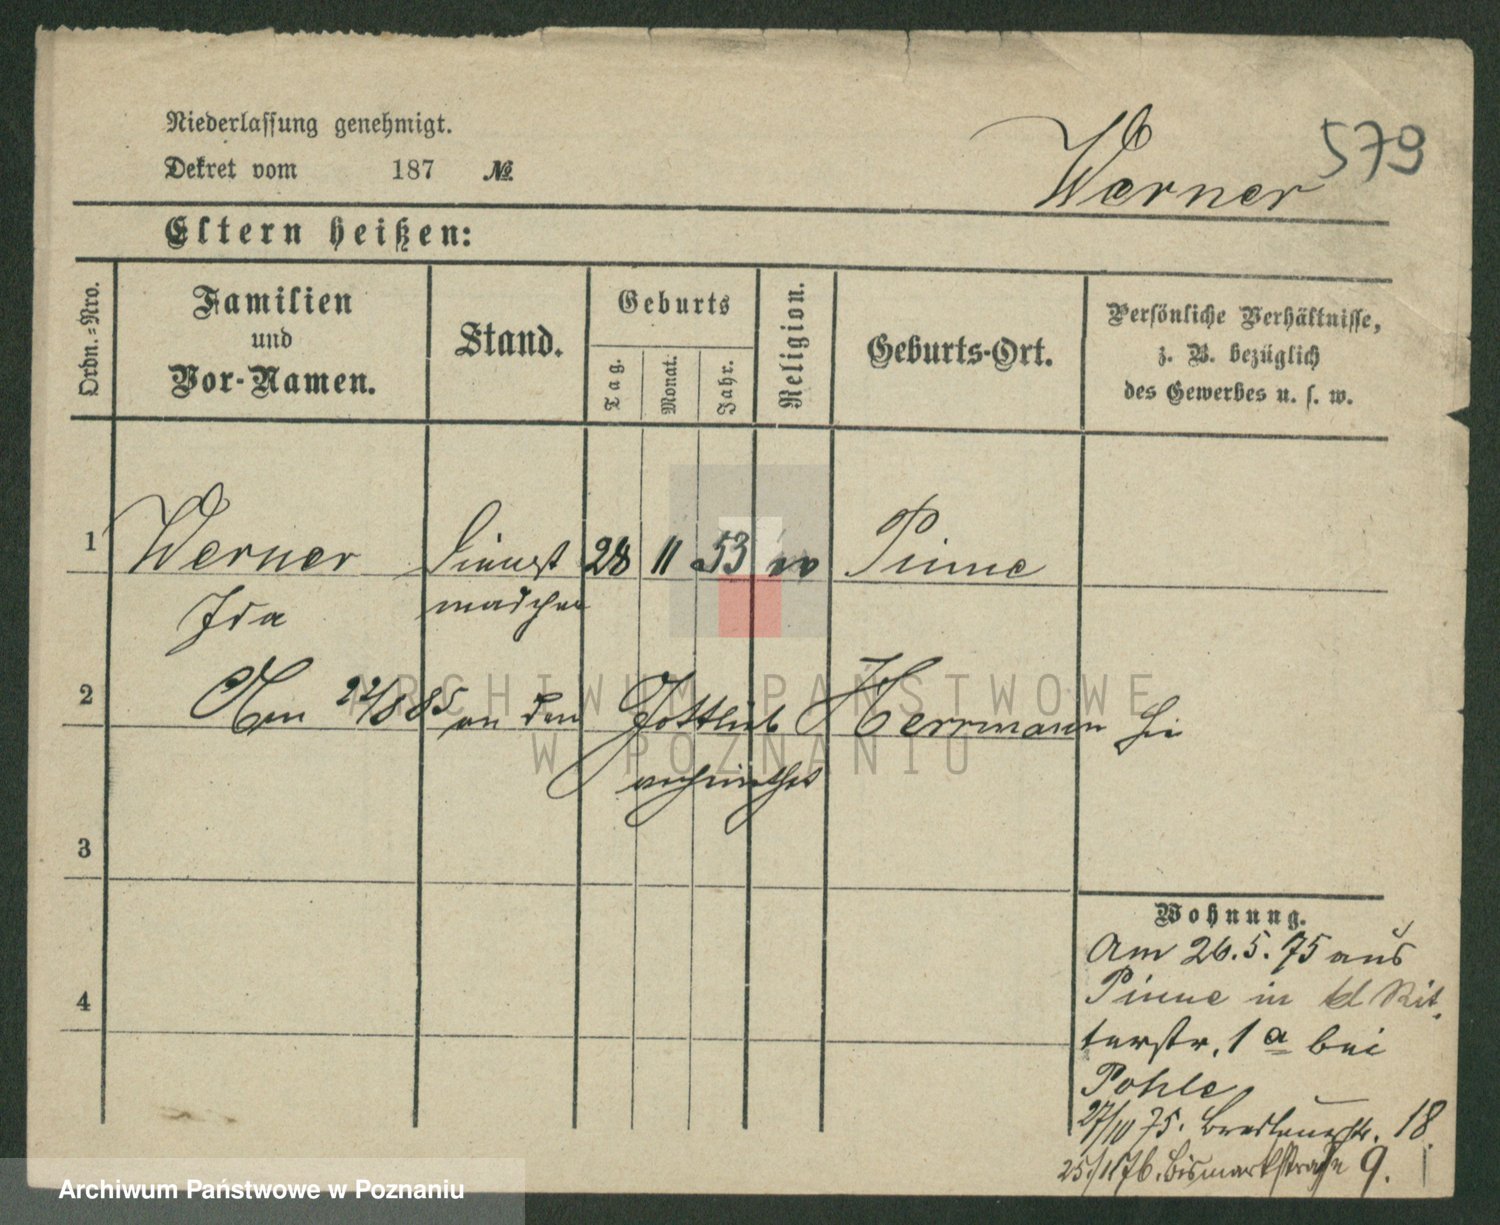 Niederlassung genehmigt.
Dekret vom 187 №
Werner 579
Eltern heißen:
Ordn.=Nro.
Familien
und
Vor-Namen.
Stand.
Geburts
Tag.
Monat.
Jahr.
Religion.
Geburts-Ort.
Persönliche Verhältnisse,
z. B. bezüglich
des Gewerbes u. s. w.
1 Werner Dienst 28 11 53 Pinne
Ida mädchen
2 Am 22/8 85 an den Gottlieb Herrmann hier
verheirathet
3
4
Wohnung.
Am 26.5.75 aus
Pinne in kl Rit,
terstr. 1 a bei
Pohle
27/10 75. Breslauerstr. 18.
25/11 76. Bismarkstraße 9.
ARCHIWUM PAŃSTWOWE
W POZNANIU
Archiwum Państwowe w Poznaniu